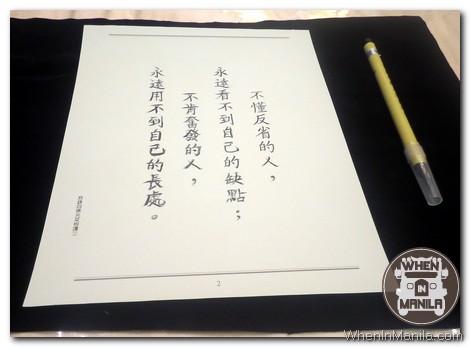 不懂反省的人,
永遠看不到自己的缺點;
不肯奮發的人,
永遠用不到自己的長處。
2
WHEN
IN
MANILA
WhenInManila.com